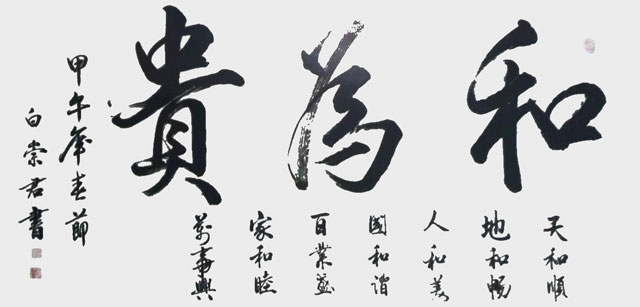 和為貴
天和順
地和暢
人和美
國和諧
百業盛
家和睦
萬事興
甲午年春節
白崇君書